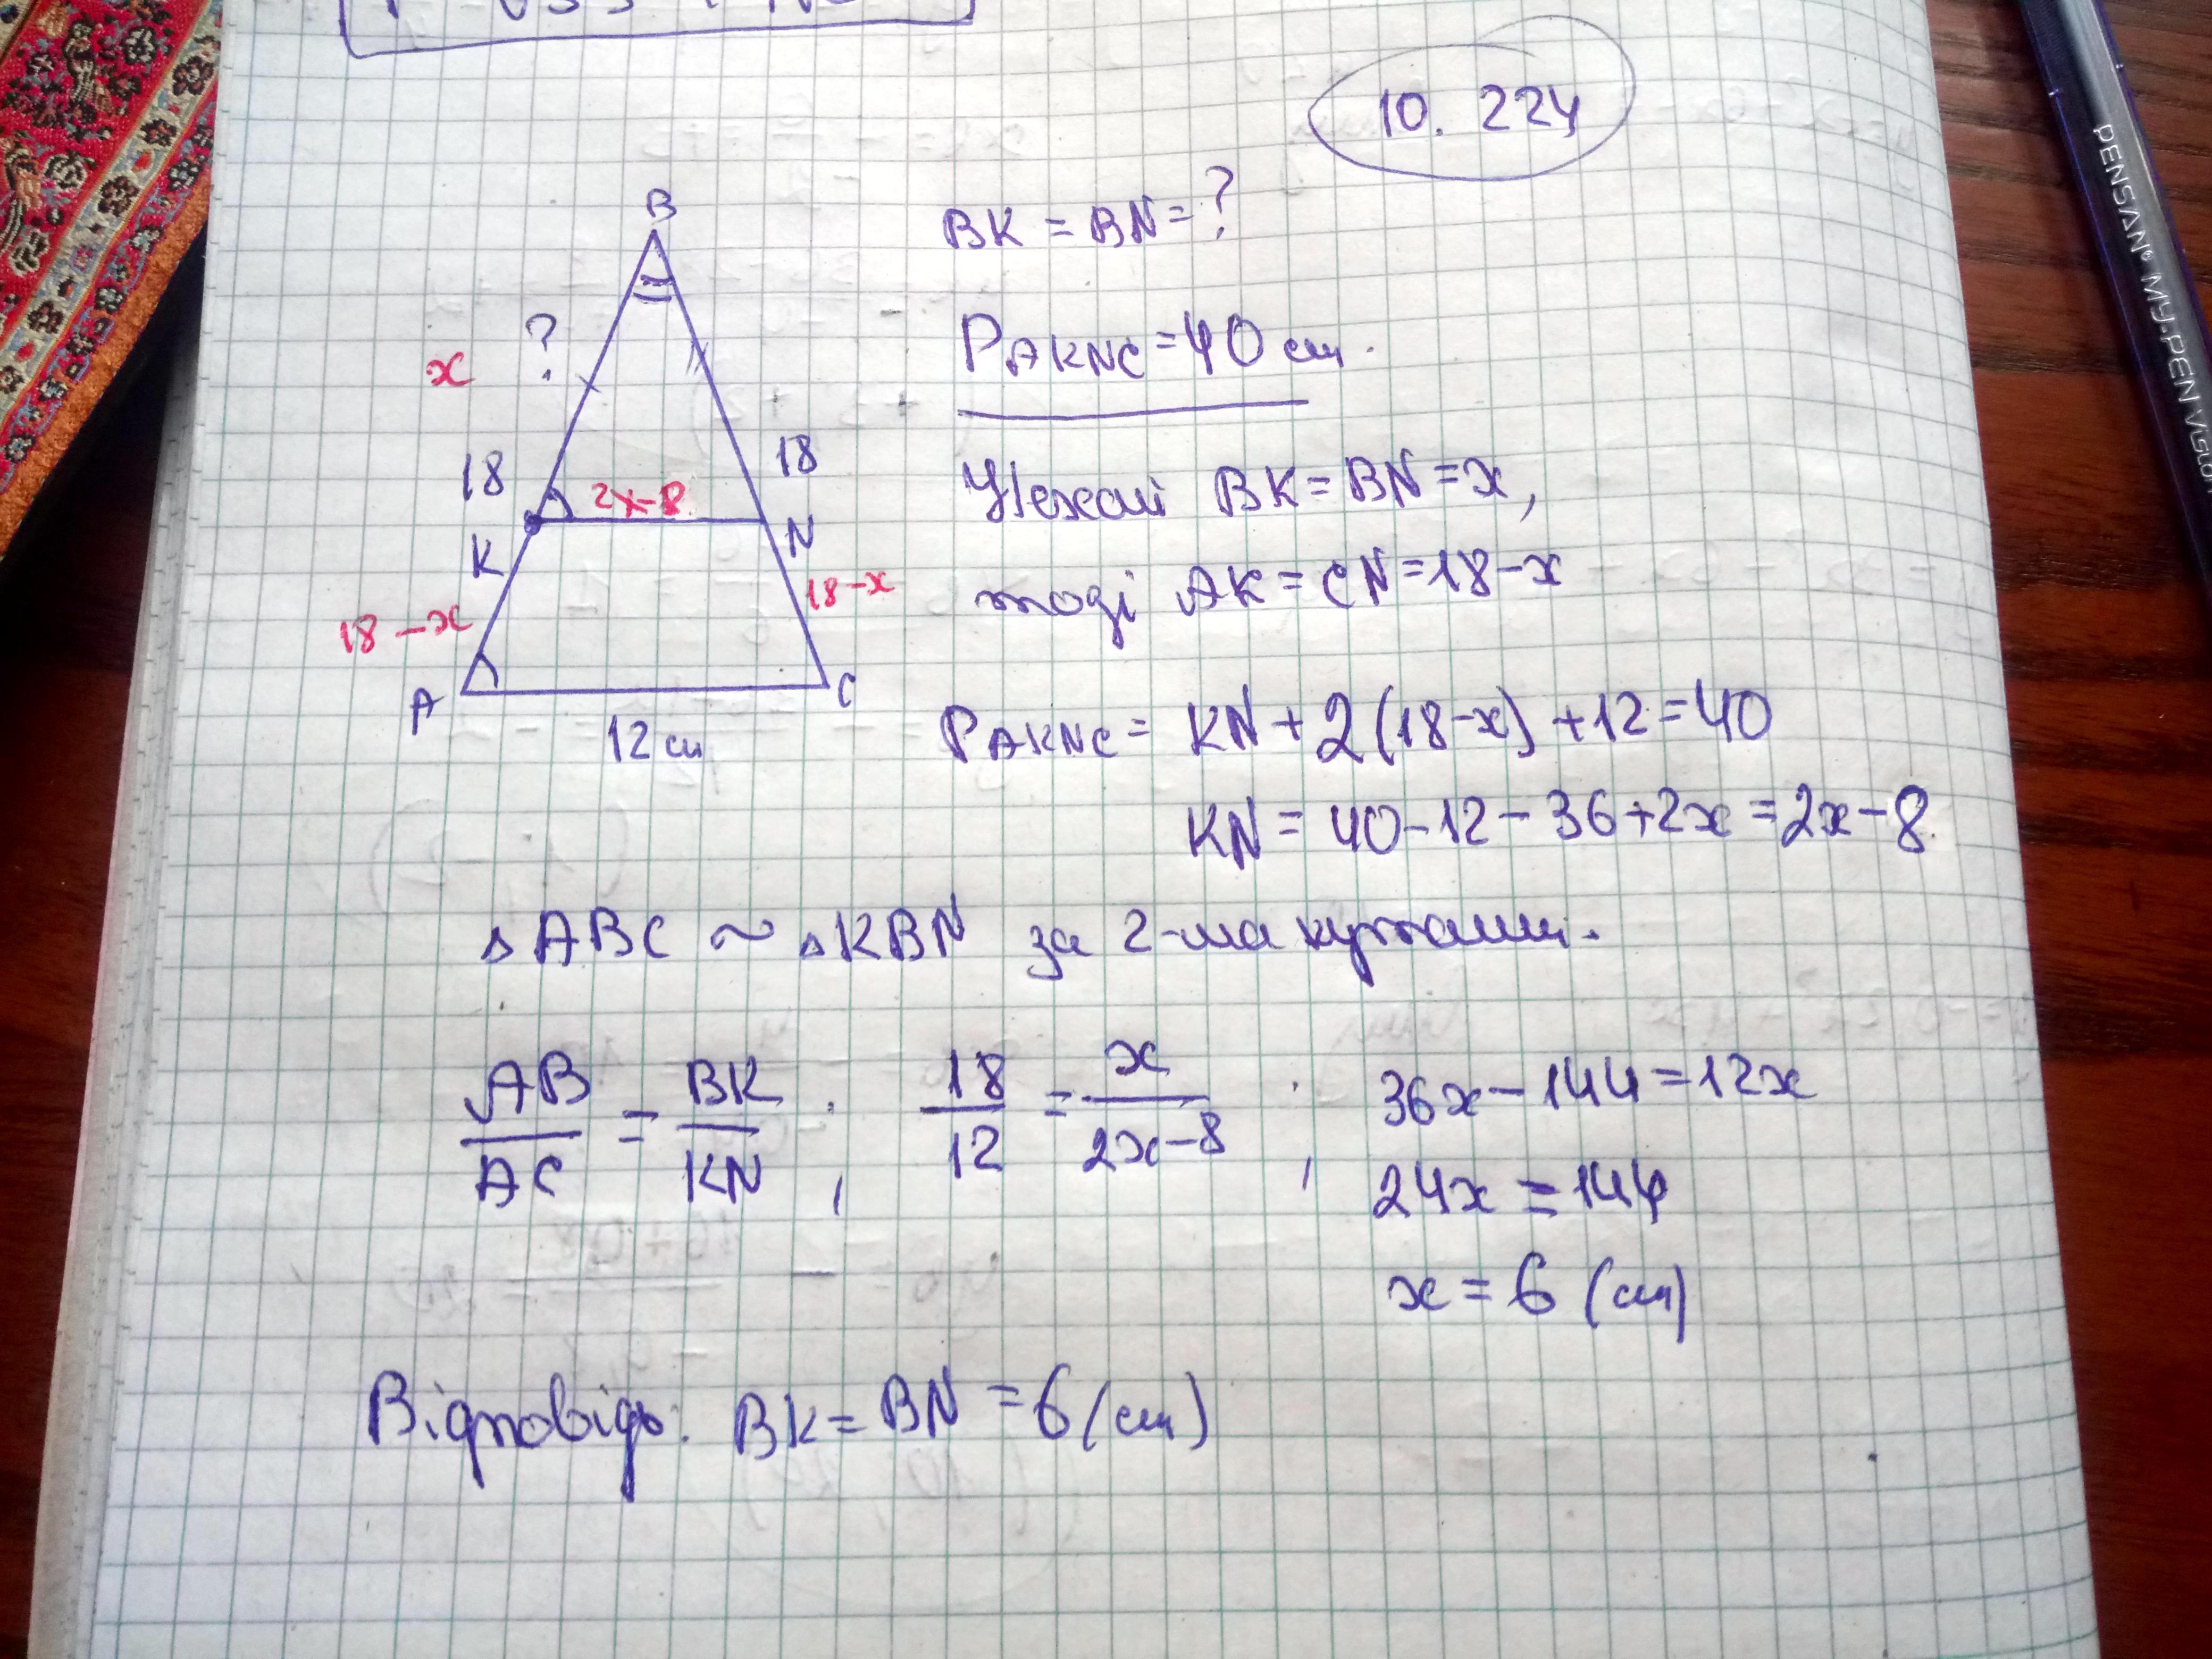 10. 224
B
BK = BN = ?
?
x
P AKNC = 40 см.
18
18
2x-8
K
N
Нехай BK = BN = x,
тоді AK = CN = 18-x
18-x
18-x
A
C
12 см
P AKNC = KN + 2(18-x) + 12 = 40
KN = 40-12-36+2x = 2x-8.
△ABC ~ △KBN за 2-ма кутами.
AB/AC = BK/KN ; 18/12 = x/(2x-8) ; 36x-144=12x
24x = 144
x = 6 (см)
Відповідь: BK = BN = 6 (см)
PENSAN® MY-PEN